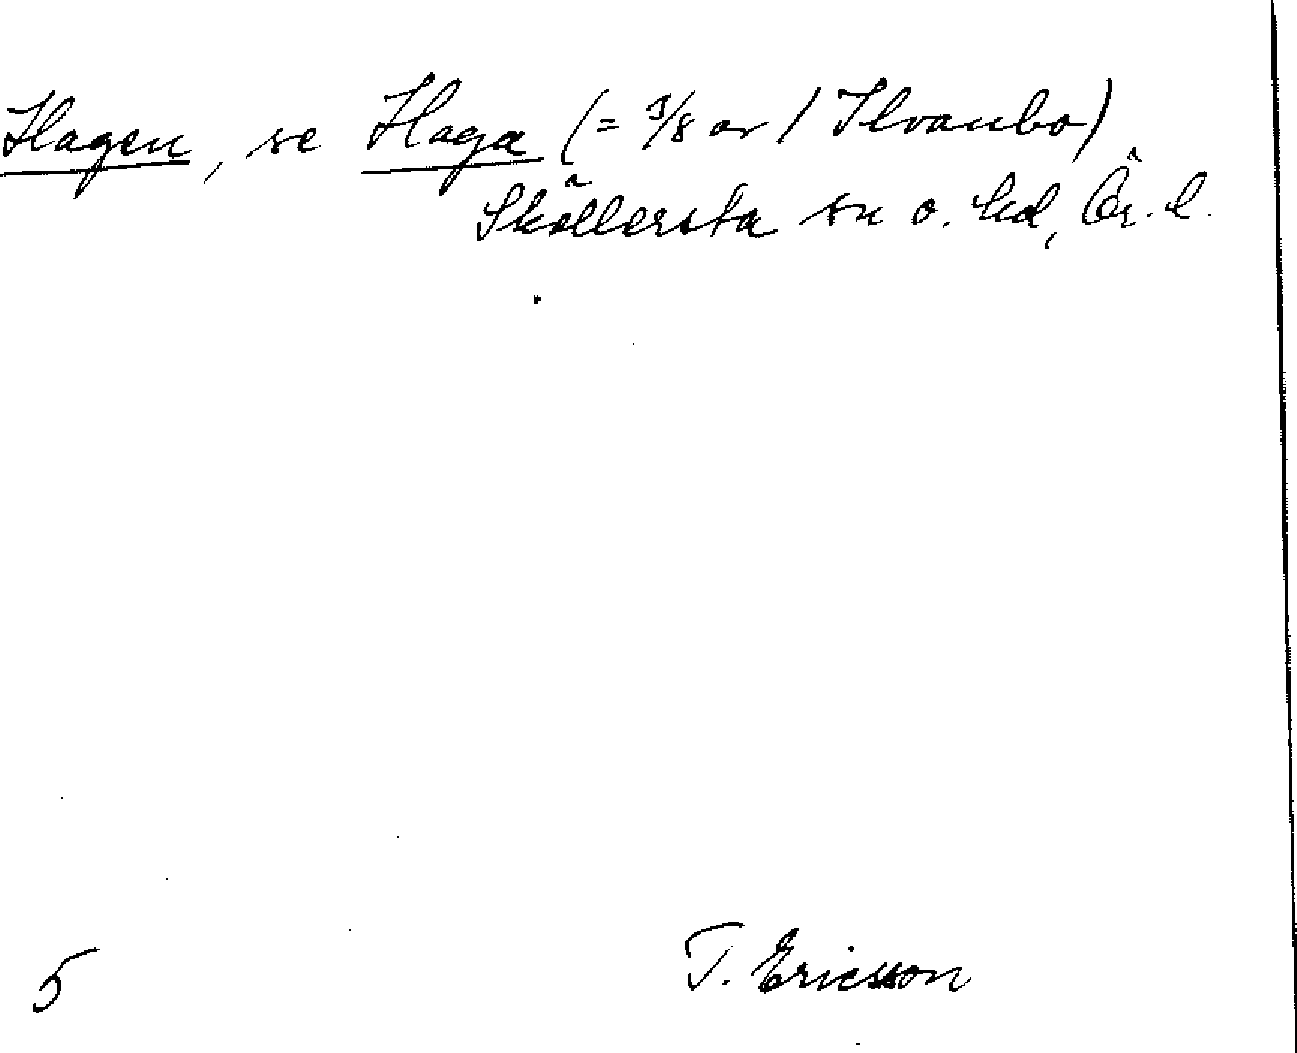 Hagen, se Haga (= 3/8 av 1 Ilvanbo)
Sköllersta sn o. hd, Ör. l.
5 T. Ericsson